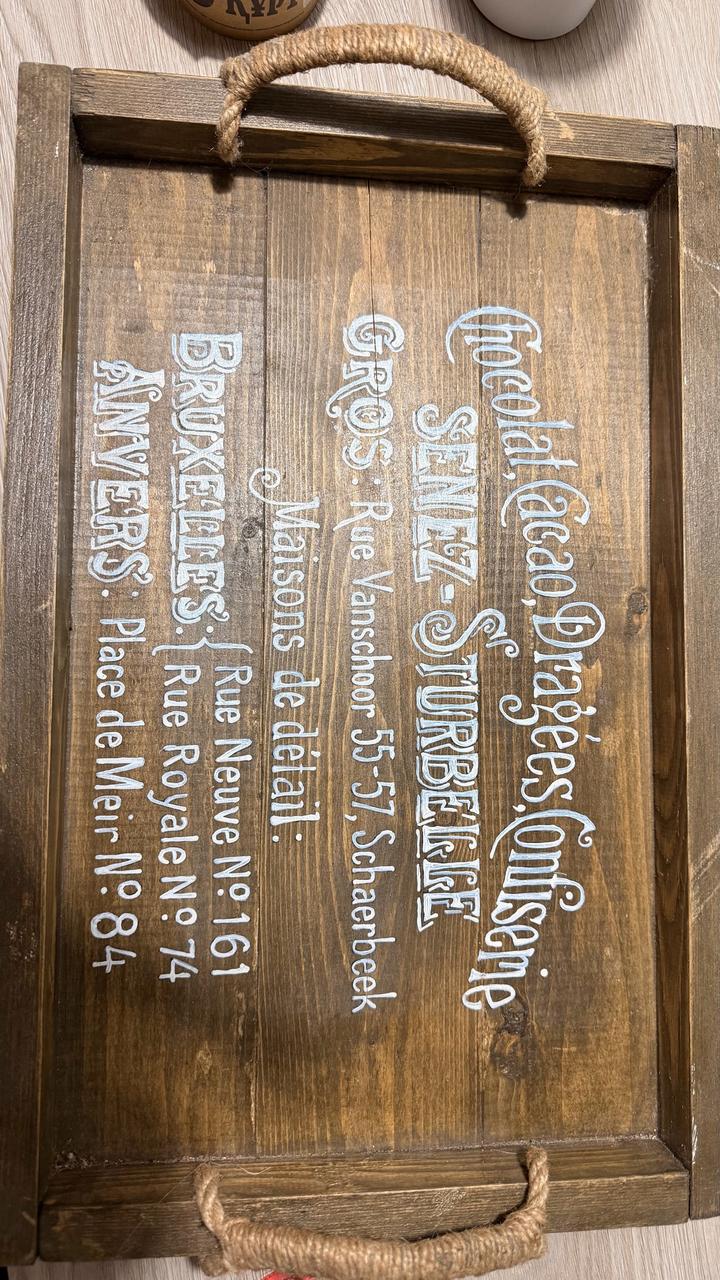 Chocolat, Cacao, Dragées, Confiserie
SENEZ-STURBELLE
GROS: Rue Vanschoor 55-57, Schaerbeek
Maisons de détail:
BRUXELLES: { Rue Neuve Nº 161
Rue Royale Nº 74
ANVERS: Place de Meir Nº 84